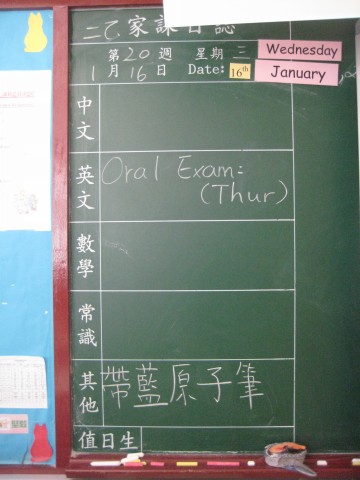 二乙家課日誌
第20週 星期三 Wednesday
1月16日 Date: 16th January
中文
英文 Oral Exam:
(Thur)
數學
常識
其他 帶藍原子筆
值日生